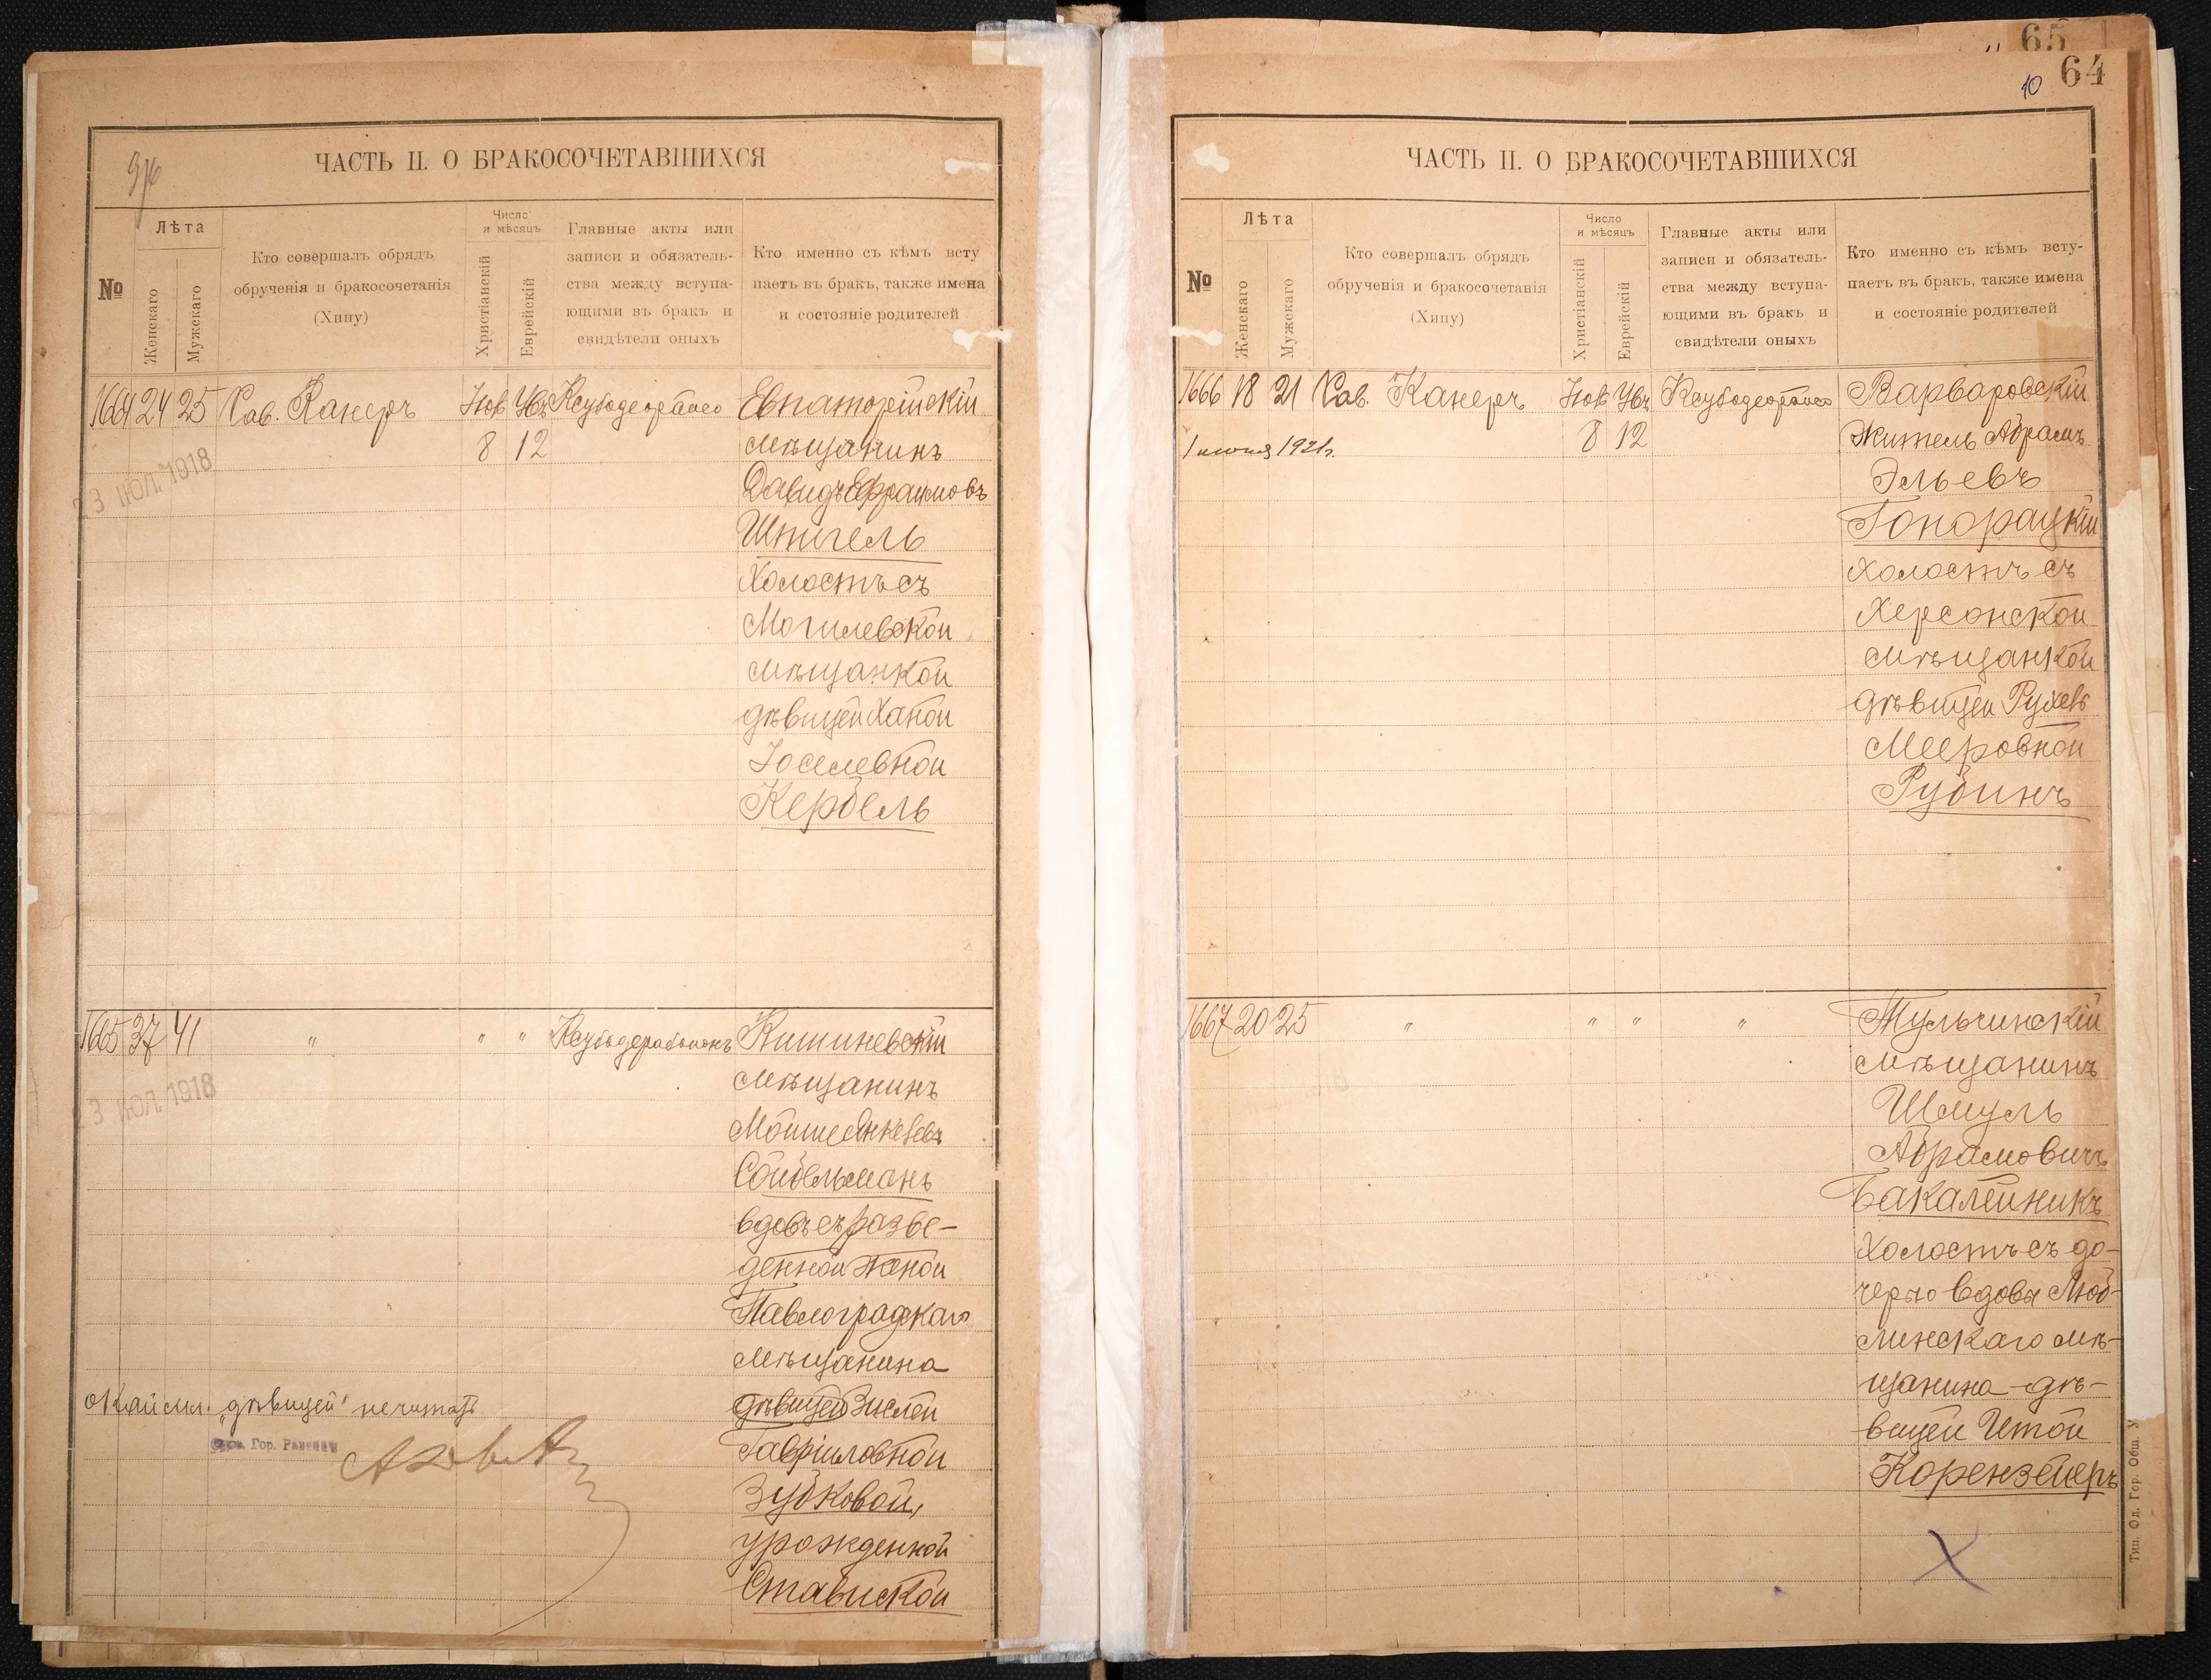 ЧАСТЬ II. О БРАКОСОЧЕТАВШИХСЯ
№
Лѣта
Женскаго
Мужскаго
Кто совершалъ обрядъ
обрученія и бракосочетанія
(Хипу)
Число
и мѣсяцъ
Христіанскій
Еврейскій
Главные акты или
записи и обязатель-
ства между вступа-
ющими въ бракъ и
свидѣтели оныхъ
Кто именно съ кѣмъ всту
паетъ въ бракъ, также имена
и состояніе родителей
1664 24 25 Рав. Канеръ
8 12
23 ІЮЛ. 1918
Евпаторійскій
мѣщанинъ
Давидъ Ефраимовъ
Шпигель
Холостъ съ
Могилевской
мѣщанкой
дѣвицей Ханой
Іоселевной
Кербель
1665 37 41 " " "
23 ІЮЛ. 1918
Кишиневскій
мѣщанинъ
Мойше Янкелевъ
Сойбельманъ
вдовъ съ разве-
денной женой
Павлоградскаго
мѣщанина
дѣвицей Зислей
Гавріиловной
Зубковой,
урожденной
Ставиской
"дѣвицей" не читать
Гор. Раввинъ
65
10 64
ЧАСТЬ II. О БРАКОСОЧЕТАВШИХСЯ
№
Лѣта
Женскаго
Мужскаго
Кто совершалъ обрядъ
обрученія и бракосочетанія
(Хипу)
Число
и мѣсяцъ
Христіанскій
Еврейскій
Главные акты или
записи и обязатель-
ства между вступа-
ющими въ бракъ и
свидѣтели оныхъ
Кто именно съ кѣмъ всту-
паетъ въ бракъ, также имена
и состояніе родителей
1666 18 21 Рав. Канеръ
8 12
1921г.
Варваровскій
житель Абрамъ
Эльевъ
Гонорацкій
холостъ съ
Херсонской
мѣщанкой
дѣвицей Рухель
Мееровной
Рубинъ
1667 20 25 " " " "
Тульчинскій
мѣщанинъ
Шмуль
Абрамовичъ
Бакалейникъ
Холостъ съ до-
черью вдовы Люб-
линскаго мѣ-
щанина дѣ-
вицей Итой
Корензейеръ
Тип. Од. Гор. Общ. У